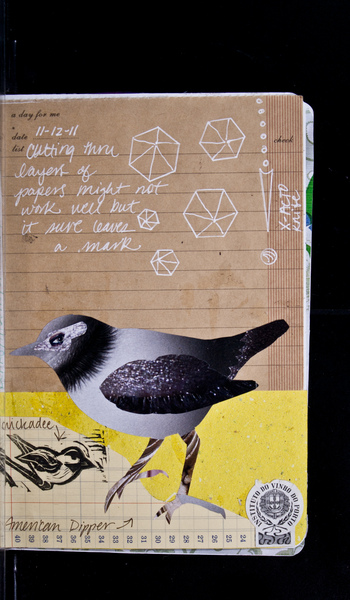 a day for me
date 11-12-11
check
list Cutting thru
layers of
papers might not
work well but
it sure leaves
a mark
X-ACTO
KNIFE
chickadee
American Dipper
INSTITUTO DO VINHO DO PORTO
40 39 38 37 36 35 34 33 32 31 30 29 28 27 26 25 24